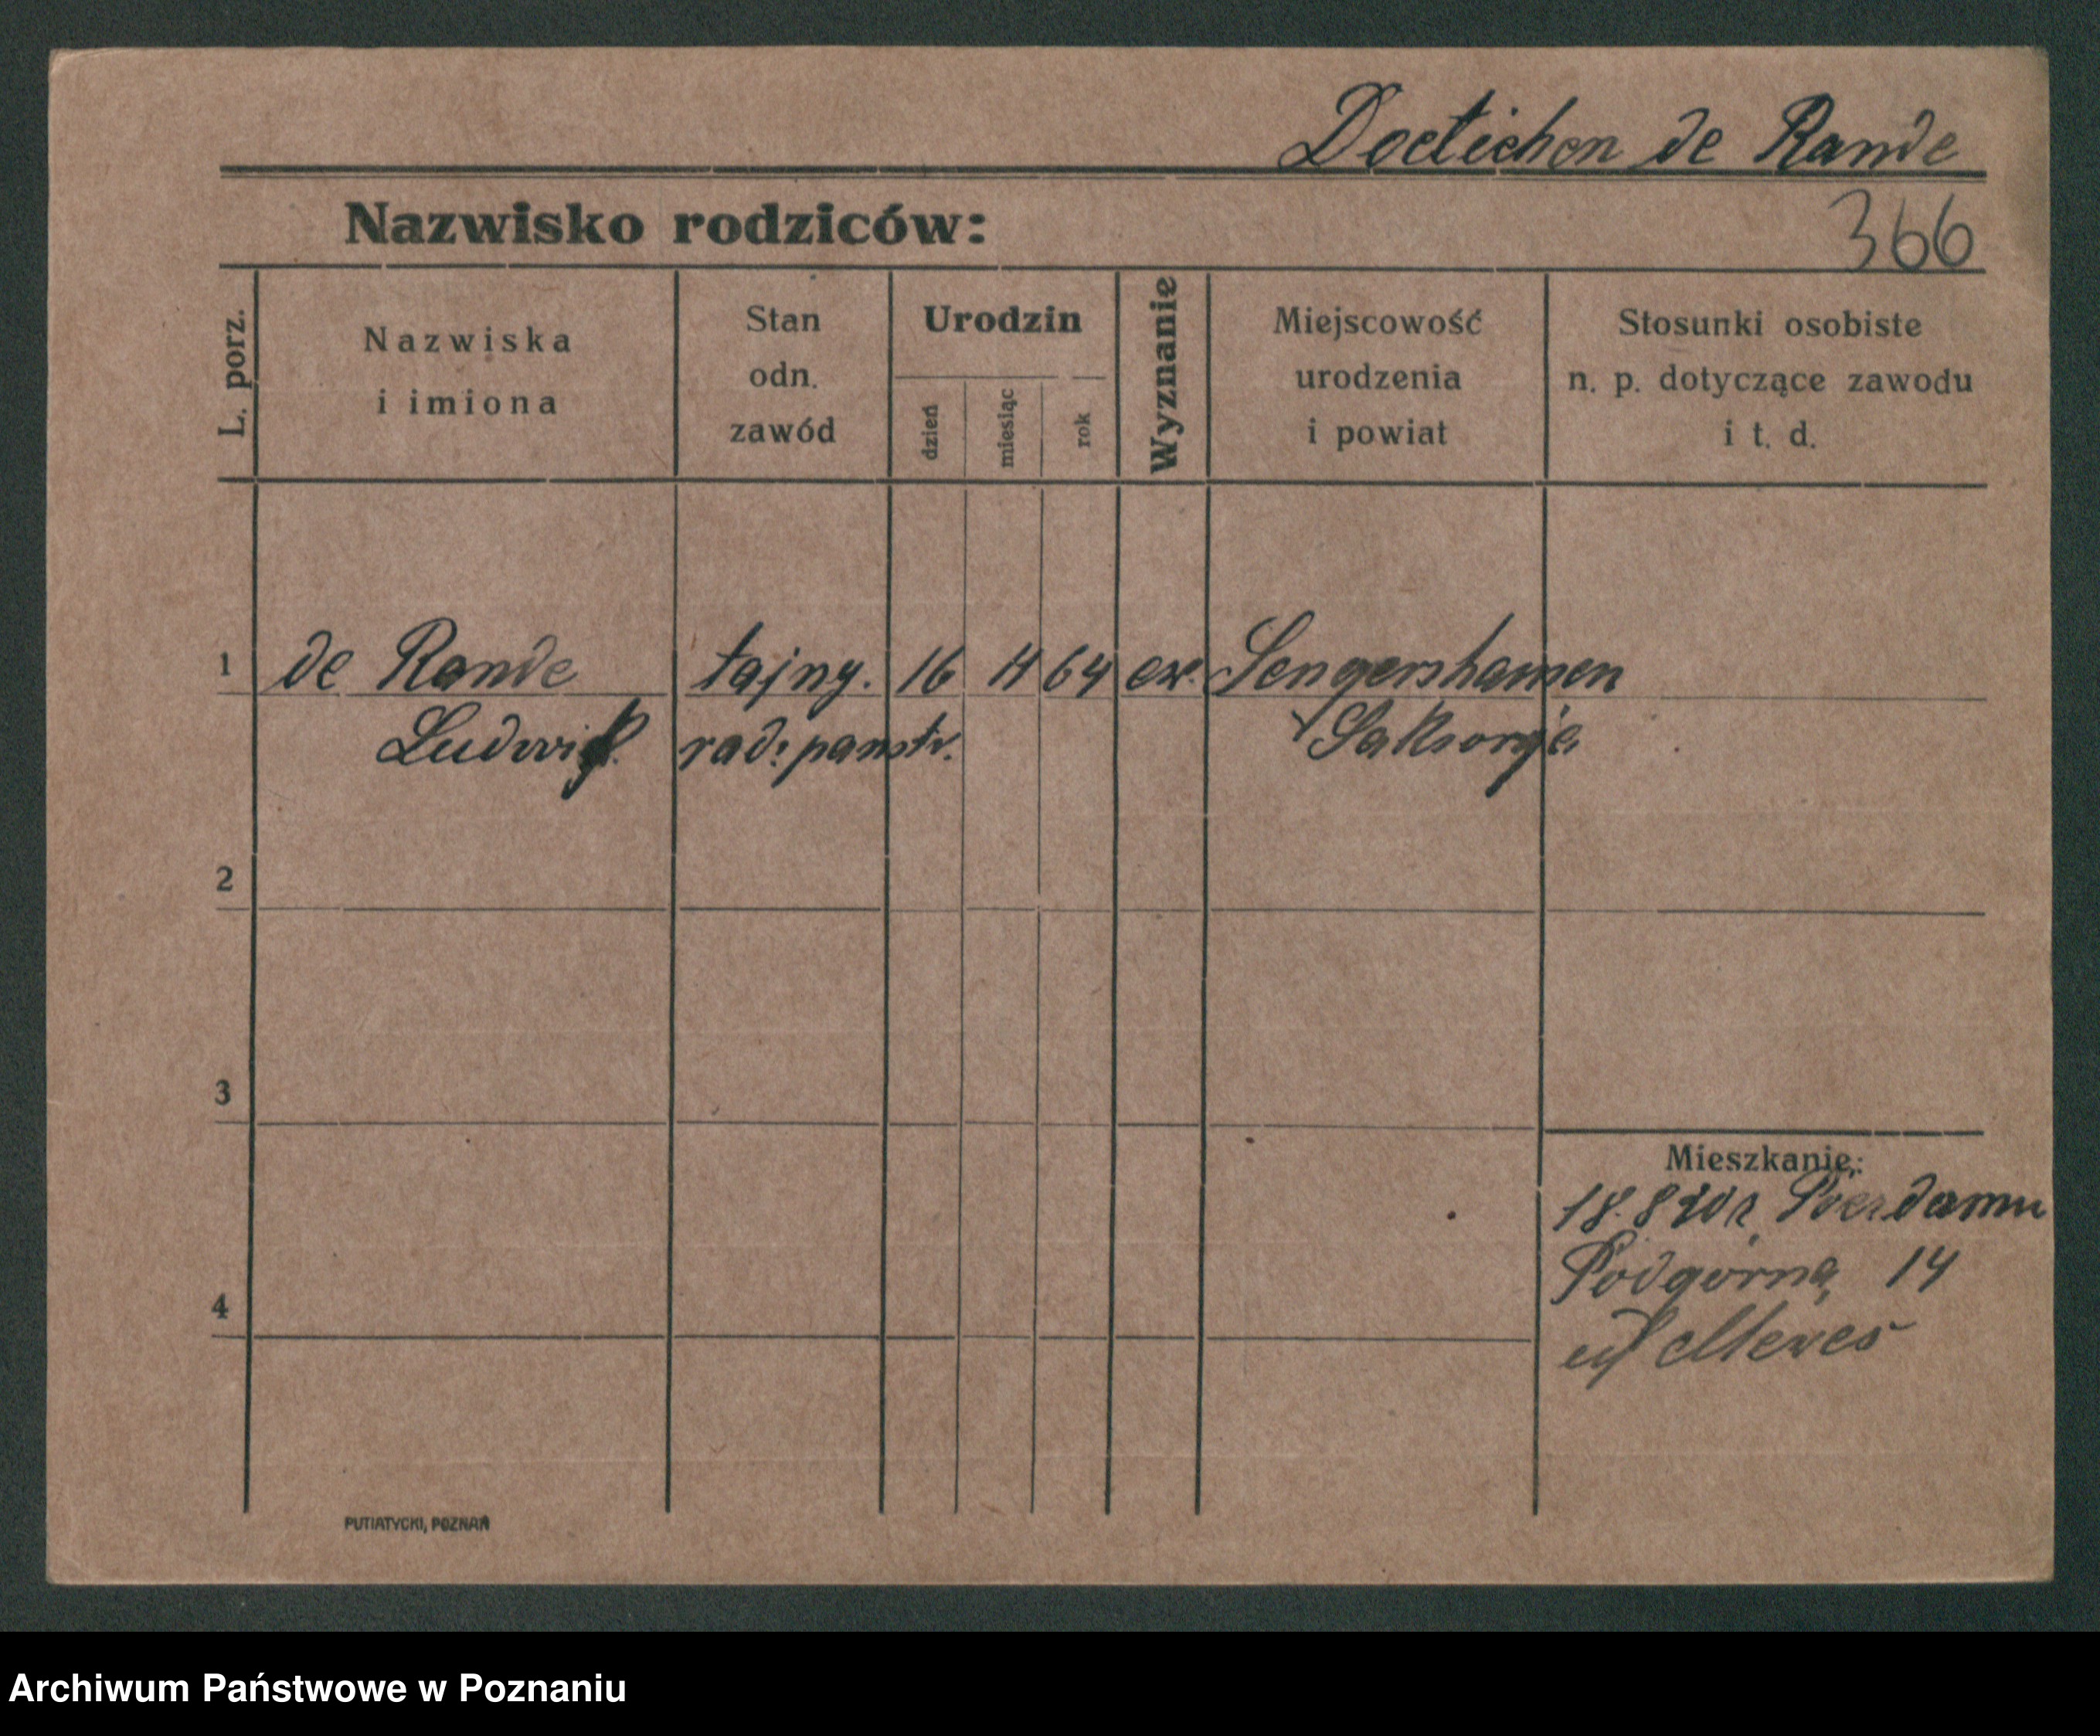 Doetichen de Rande
Nazwisko rodziców:
366
L. porz.
Nazwiska
i imiona
Stan
odn.
zawód
Urodzin
dzień
miesiąc
rok
Wyznanie
Miejscowość
urodzenia
i powiat
Stosunki osobiste
n. p. dotyczące zawodu
i t. d.
1 de Rande tajny. 16 64 ew.
Ludwik rad: panstw.
2
3
4
Mieszkanie:
18.8
Podgórna 14
PUTIATYCKI, POZNAŃ
Archiwum Państwowe w Poznaniu